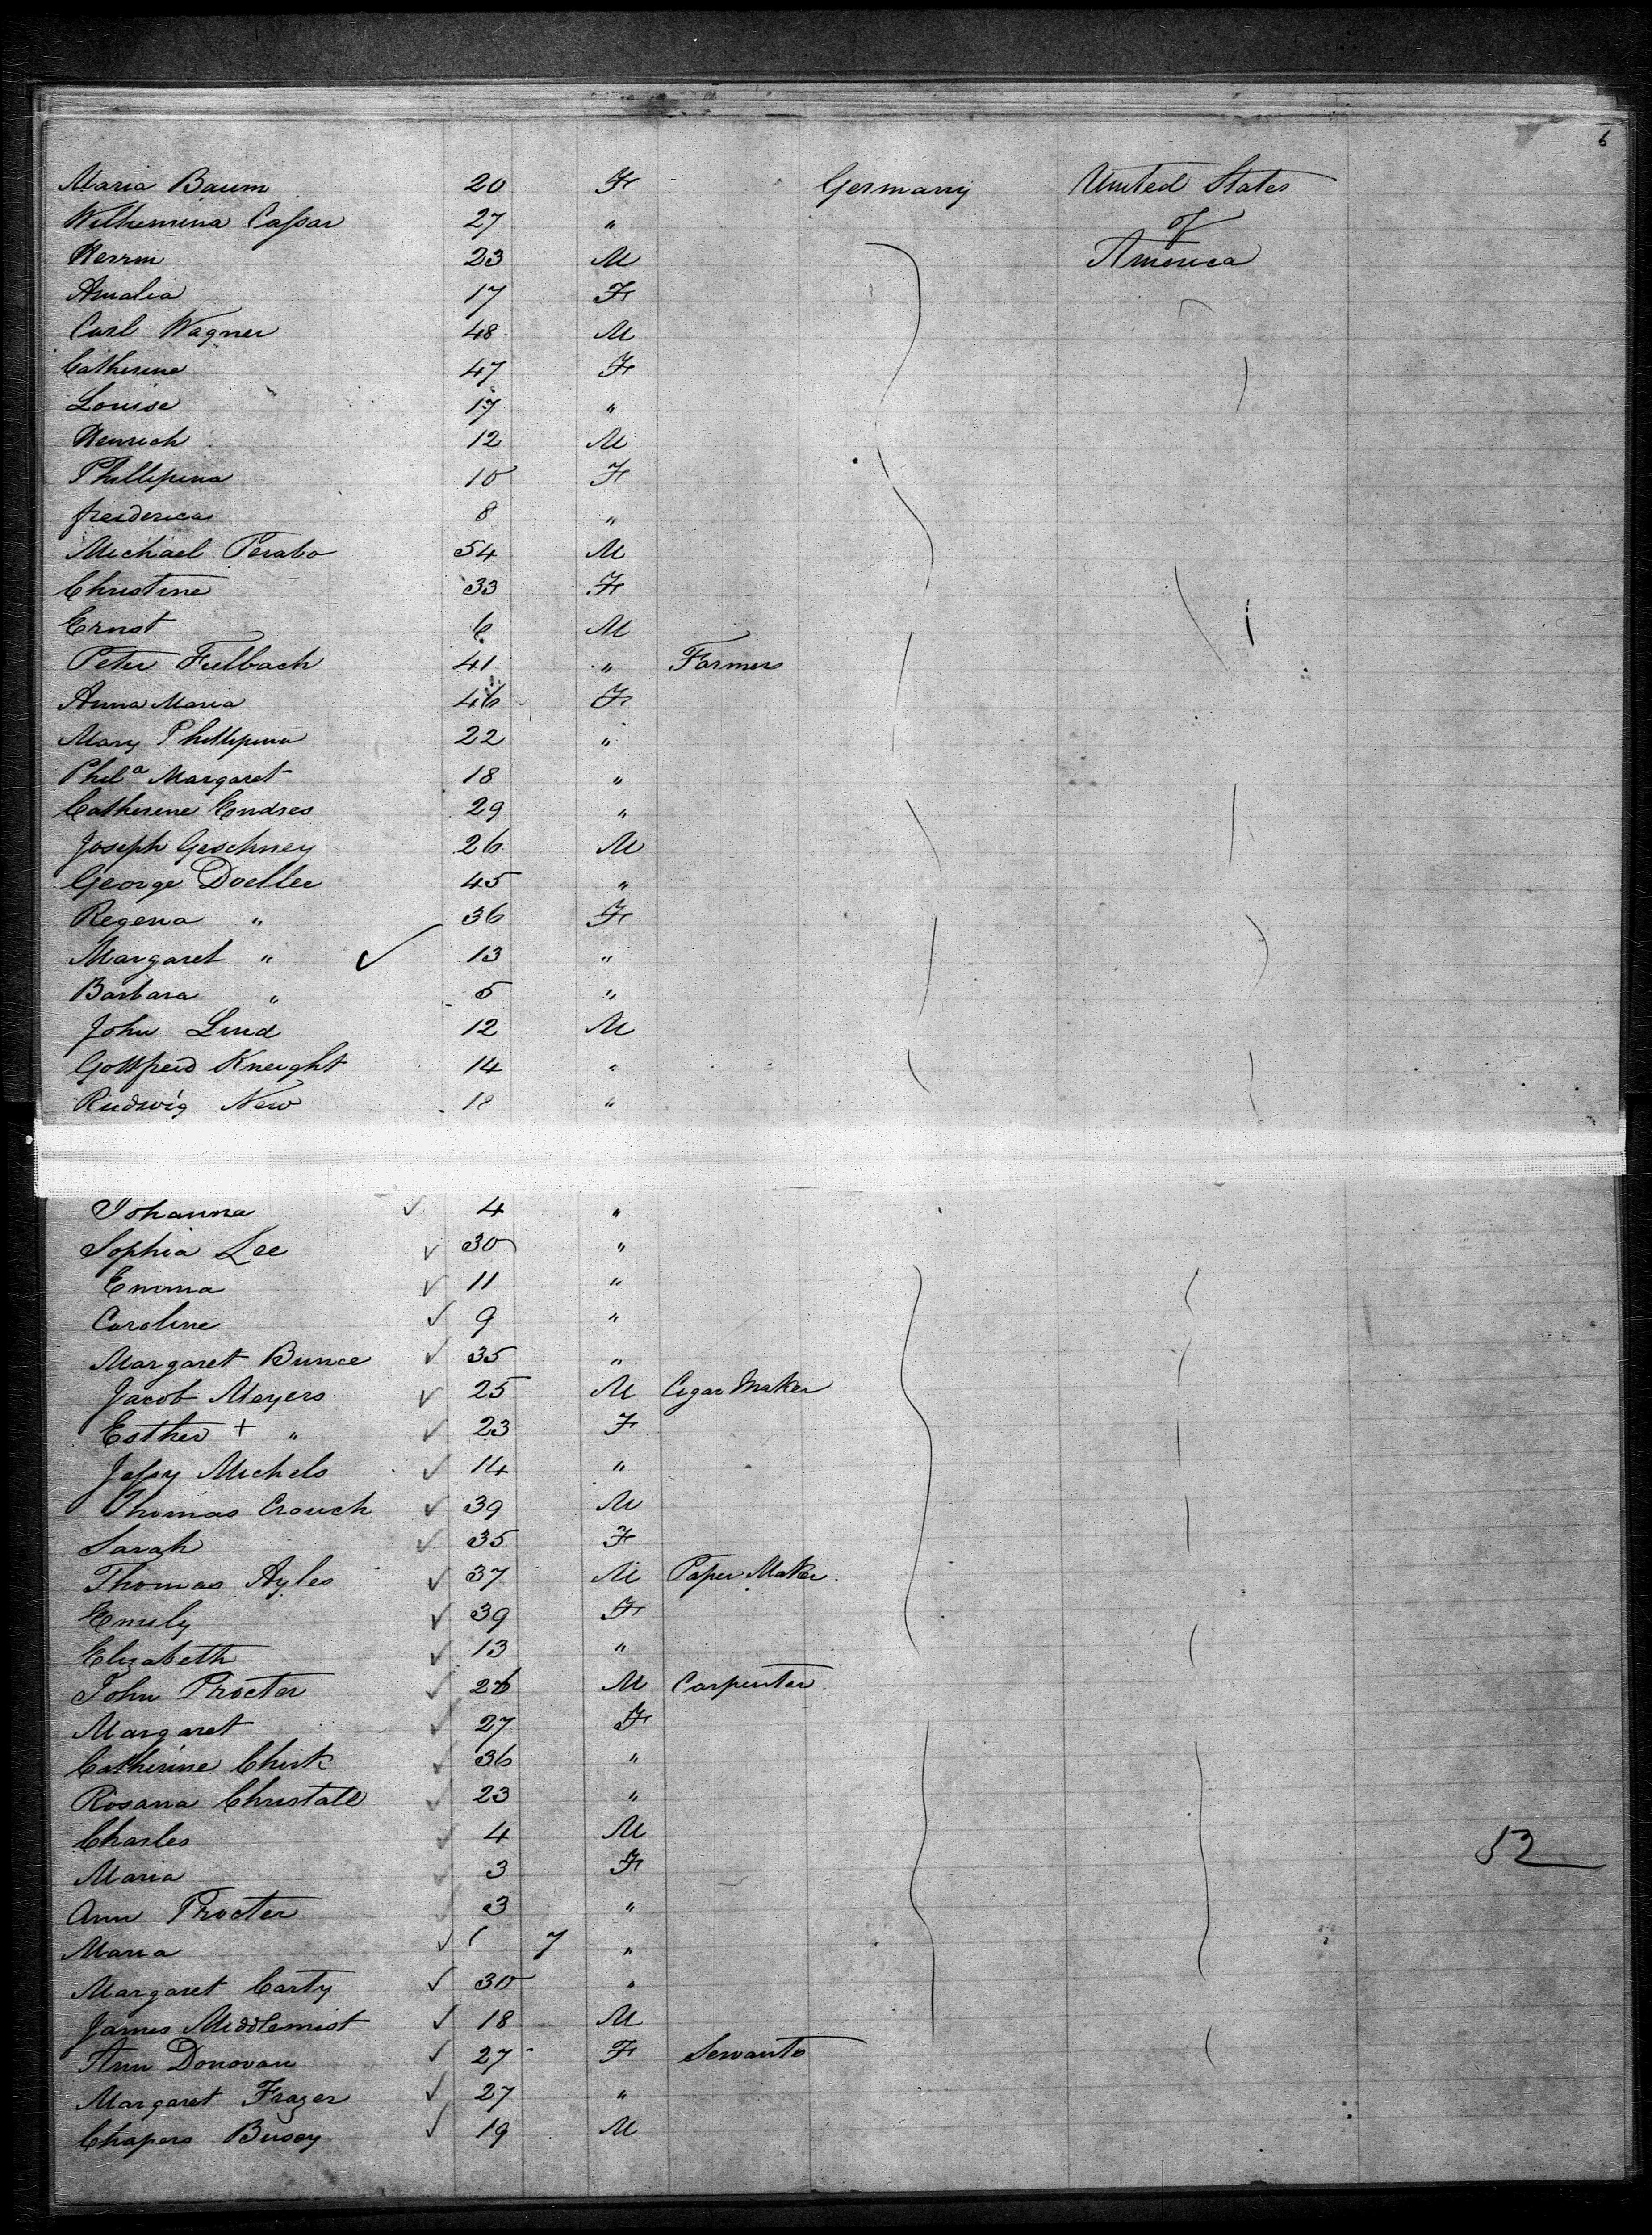 6
Maria Baum 20 F Germany United States
Wilhemina Cassar 27 " of
Herrm 23 M America
Amalia 17 F
Carl Wagner 48 M
Catherine 47 F
Louise 17 "
Henrich 12 M
Phillipina 10 F
frederica 8 "
Michael Perabo 54 M
Christine 33 F
Ernst 6 M
Peter Fulbach 41 " Farmers
Anna Maria 46 F
Mary Phillipina 22 "
Phila Margaret 18 "
Catherine Endres 29 "
Joseph Geschney 26 M
George Doeller 45 "
Regena " 36 F
Margaret " ✓ 13 "
Barbara " 5 "
John Lind 12 M
Gottfreid Kneight 14 "
Rudwig New 18 "
Johanna ✓ 4 "
Sophia Lee ✓ 30 "
Emma ✓ 11 "
Caroline ✓ 9 "
Margaret Bunce ✓ 35 "
Jacob Meyers ✓ 25 M Cigar Maker
Esther + " ✓ 23 F
Jessy Michels ✓ 14 "
Thomas Crouch ✓ 39 M
Sarah ✓ 35 F
Thomas Ayles ✓ 37 M Paper Maker
Emily ✓ 39 F
Elizabeth ✓ 13 "
John Procter ✓ 26 M Carpenter
Margaret ✓ 27 F
Catherine Chirk ✓ 36 "
Rosana Christall ✓ 23 "
Charles ✓ 4 M
52
Maria ✓ 3 F
Ann Procter ✓ 3 "
Maria ✓ 7 "
Margaret Carty ✓ 30 "
James Middlemist ✓ 18 M
Ann Donovan ✓ 27 F Servants
Margaret Frazer ✓ 27 "
Chapers Busey ✓ 19 M